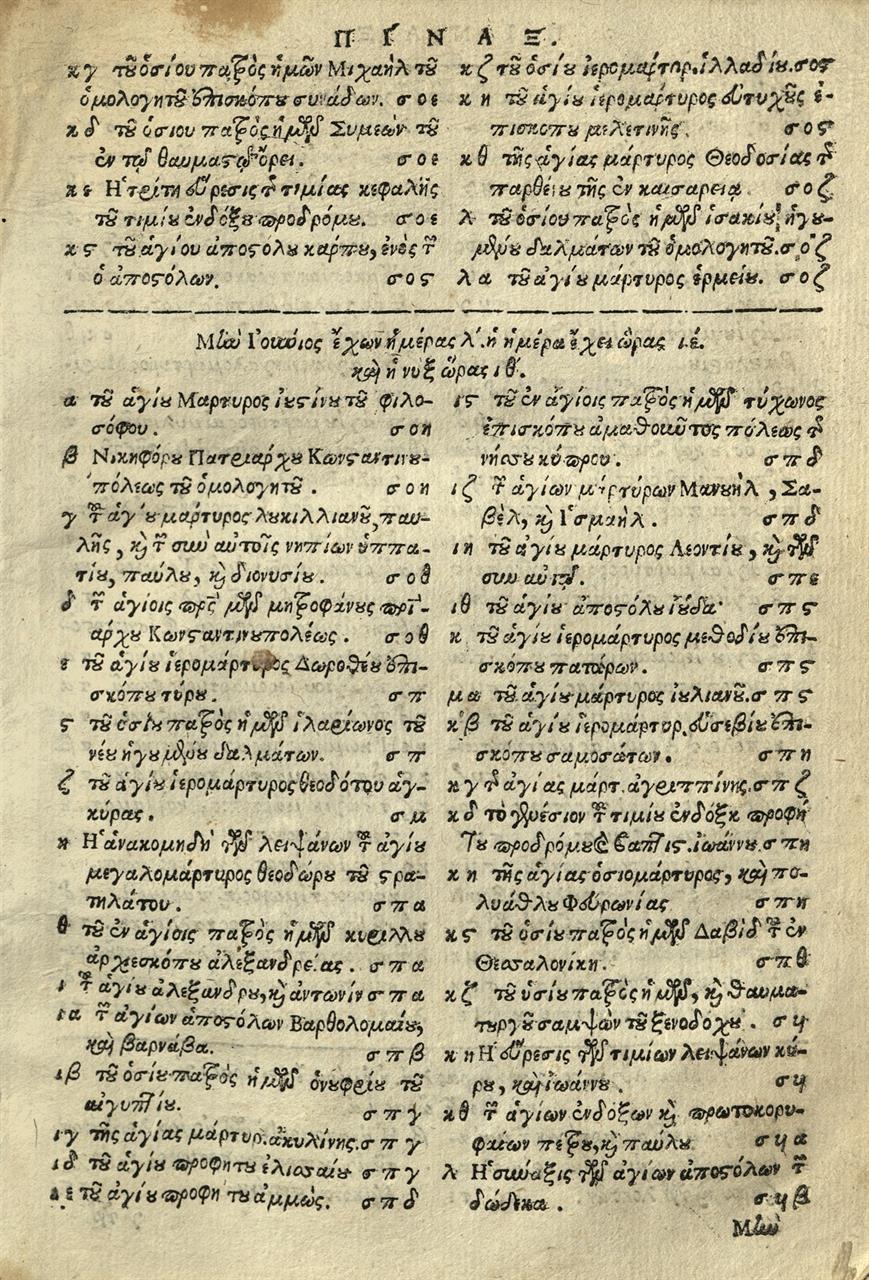 ΠΙΝΑΞ.
κγ τοῦ ὁσίου πατρὸς ἡμῶν Μιχαὴλ τοῦ
ὁμολογητοῦ ἐπισκόπου συνάδων. σοε
κδ τοῦ ὁσίου πατρὸς ἡμῶν Συμεὼν τοῦ
ἐν τῷ θαυμαστῷ ὄρει. σοε
κε Ἡ τρίτη εὕρεσις τῆς τιμίας κεφαλῆς
τοῦ τιμίου ἐνδόξου προδρόμου. σοε
κς τοῦ ἁγίου ἀποστόλου κάρπου, ἑνὸς τῶν
ὁ ἀποστόλων. σος
κζ τοῦ ὁσίου ἱερομάρτυρ. ἑλλαδίου. σος
κη τοῦ ἁγίου ἱερομάρτυρος εὐτυχοῦς ἐ-
πισκόπου μελετινῆς. σος
κθ τῆς ἁγίας μάρτυρος Θεοδοσίας τῆς
παρθένου τῆς ἐν καισαρείᾳ. σοζ
λ τοῦ ὁσίου πατρὸς ἡμῶν ἰσακίου ἡγου-
μένου δαλμάτων τοῦ ὁμολογητοῦ. σοζ
λα τοῦ ἁγίου μάρτυρος ἑρμείου. σοζ
Μὴν Ἰούνιος ἔχων ἡμέρας λ. ἡ ἡμέρα ἔχει ὥρας ιέ.
καὶ ἡ νυξ ὥρας ιθ.
α τοῦ ἁγίου Μάρτυρος ἰουστίνου τοῦ φιλο-
σόφου. σοη
β Νικηφόρου Πατριάρχου Κωνσταντινου-
πόλεως τοῦ ὁμολογητοῦ. σοη
γ τῶν ἁγίου μάρτυρος λουκιλλιανοῦ, παυ-
λῆς, καὶ τῶν σὺν αὐτοῖς νηπίων ὑππα-
τίου, παύλου, καὶ διονυσίου. σοθ
δ τοῦ ἁγίοις πρς ἡμῶν μητροφάνους πρι-
άρχου Κωνσαντινουπολέως. σοθ
ε τοῦ ἁγίου ἱερομάρτυρος Δωροθέου ἐπι-
σκόπου τύρου. σπ
ς τοῦ ὁσίου πατρὸς ἡμῶν ἱλαρίωνος τοῦ
νέου ἡγουμένου δαλμάτων. σπ
ζ τοῦ ἁγίου ἱερομάρτυρος θεοδότου ἀγ-
κύρας. σπ
η Ἡ ἀνακομηδὴ τῶν λειψάνων τοῦ ἁγίου
μεγαλομάρτυρος θεοδώρου τοῦ στρα-
τηλάτου. σπα
θ τοῦ ἐν ἁγίοις πατρὸς ἡμῶν κυρίλλου
ἀρχιεσκόπου ἀλεξανδρείας. σπα
ι τῶν ἁγίου ἀλεξάνδρου, καὶ ἀντωνίν σπα
ια τῶν ἁγίων ἀποστόλων Βαρθολομαίου,
καὶ βαρνάβα. σπβ
ιβ τοῦ ὁσίου πατρὸς ἡμῶν ὀνυφρίου τοῦ
αἰγυπτίου. σπγ
ιγ τῆς ἁγίας μάρτυρ. ἀκυλίνης. σπγ
ιδ τοῦ ἁγίου προφήτου ἐλισσαίου σπγ
ιε τοῦ ἁγίου προφήτου ἀμμώς. σπδ
ις τοῦ ἐν ἁγίοις πατρὸς ἡμῶν τύχωνος
ἐπισκόπου ἀμαθοῦντος πόλεως τῆς
νήσου κύπρου. σπδ
ιζ τῶν ἁγίων μαρτύρων Μανουὴλ, Σα-
βὲλ, καὶ Ἰσμαὴλ. σπδ
ιη τοῦ ἁγίου μάρτυρος Λεοντίου, καὶ τῶν
σὺν αὐτῷ. σπε
ιθ τοῦ ἁγίου ἀποστόλου ἰούδα σπς
κ τοῦ ἁγίου ἱερομάρτυρος μεθοδίου ἐπι-
σκόπου πατάρων. σπς
μα τοῦ ἁγίου μάρτυρος ἰουλιανοῦ. σπς
κβ τοῦ ἁγίου ἱερομάρτυρ. εὐσεβίου ἐπι-
σκόπου σαμοσάτων. σπη
κγ τῆς ἁγίας μάρτ. ἀγριππίνης. σπζ
κδ τὸ γενέσιον τοῦ τιμίου ἐνδόξου προφή
του προδρόμου καὶ βαπτις. ἰωάννου. σπη
κη τῆς ἁγίας ὁσιομάρτυρος, καὶ πο-
λυάθλου Φευρωνίας σπη
κς τοῦ ὁσίου πατρὸς ἡμῶν Δαβὶδ τοῦ ἐν
Θεσαλονίκη. σπθ
κζ τοῦ ὁσίου πατρὸς ἡμῶν, καὶ θαυμα-
τουργοῦ σαμψὼν τοῦ ξενοδόχου. σϟ
κη Ἡ εὕρεσις τῶν τιμίων λειψάνων κύ-
ρου, καὶ ἰωάννου. σϟ
κθ τῶν ἁγίων ἐνδόξων καὶ πρωτοκορυ-
φαίων πέτρου, καὶ παύλου σϟα
λ Ἡ σύναξις τῶν ἁγίων ἀποστόλων τῶν
δώδεκα. σϟβ
Μὴν